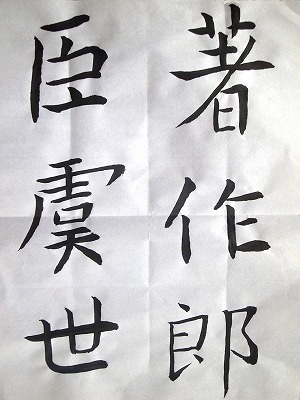 著作郎
臣虞世